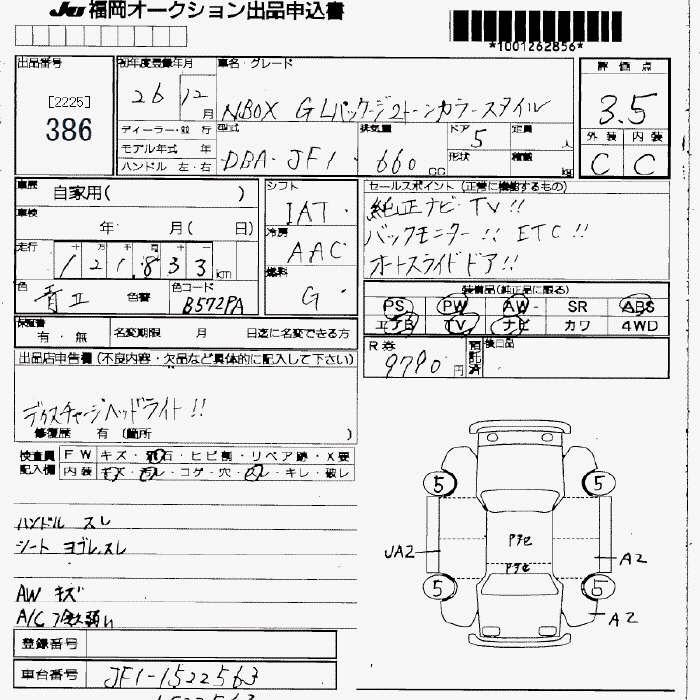 JU 福岡オークション出品申込書
*1001262856*
出品番号 初年度登録年月 車名・グレード 評価点
[2225]
386
26 12月 NBOX GLパッケージ2トーンカラースタイル 3.5
ディーラー・並行 型式 排気量 ドア 定員 人 外装 内装
モデル年式 年 DBA-JF1 660 cc 5 形状 積載 kg C C
ハンドル 左・右
車歴 自家用( ) シフト セールスポイント (正常に機能するもの)
車検 年 月( 日) IAT 純正ナビ・TV!!
冷房 AAC バックモニター!! ETC!!
走行 十 万 千 百 十 一 オートスライドドア!!
121,833 km 燃料 G
色 青II 色替 色コード B572PA 装備品(純正品に限る)
PS PW AW SR ABS
エアB TV ナビ カワ 4WD
保証書 有・無 名変期限 月 日迄に名変できる方
R券 9790円 預託済 後日品
出品店申告欄(不良内容・欠品など具体的に記入して下さい)
ディスチャージヘッドライト!!
修復歴 有 (箇所 )
検査員 FW キズ・飛石・ヒビ割・リペア跡・X要
記入欄 内装 キズ・汚レ・コゲ・穴・ ・キレ・破レ
ハンドル スレ
シート ヨゴレ、スレ
AW キズ
5 5
UA2 アチセ A2
アチセ
5 5
A2
登録番号
車台番号 JF1-1522563
1522563